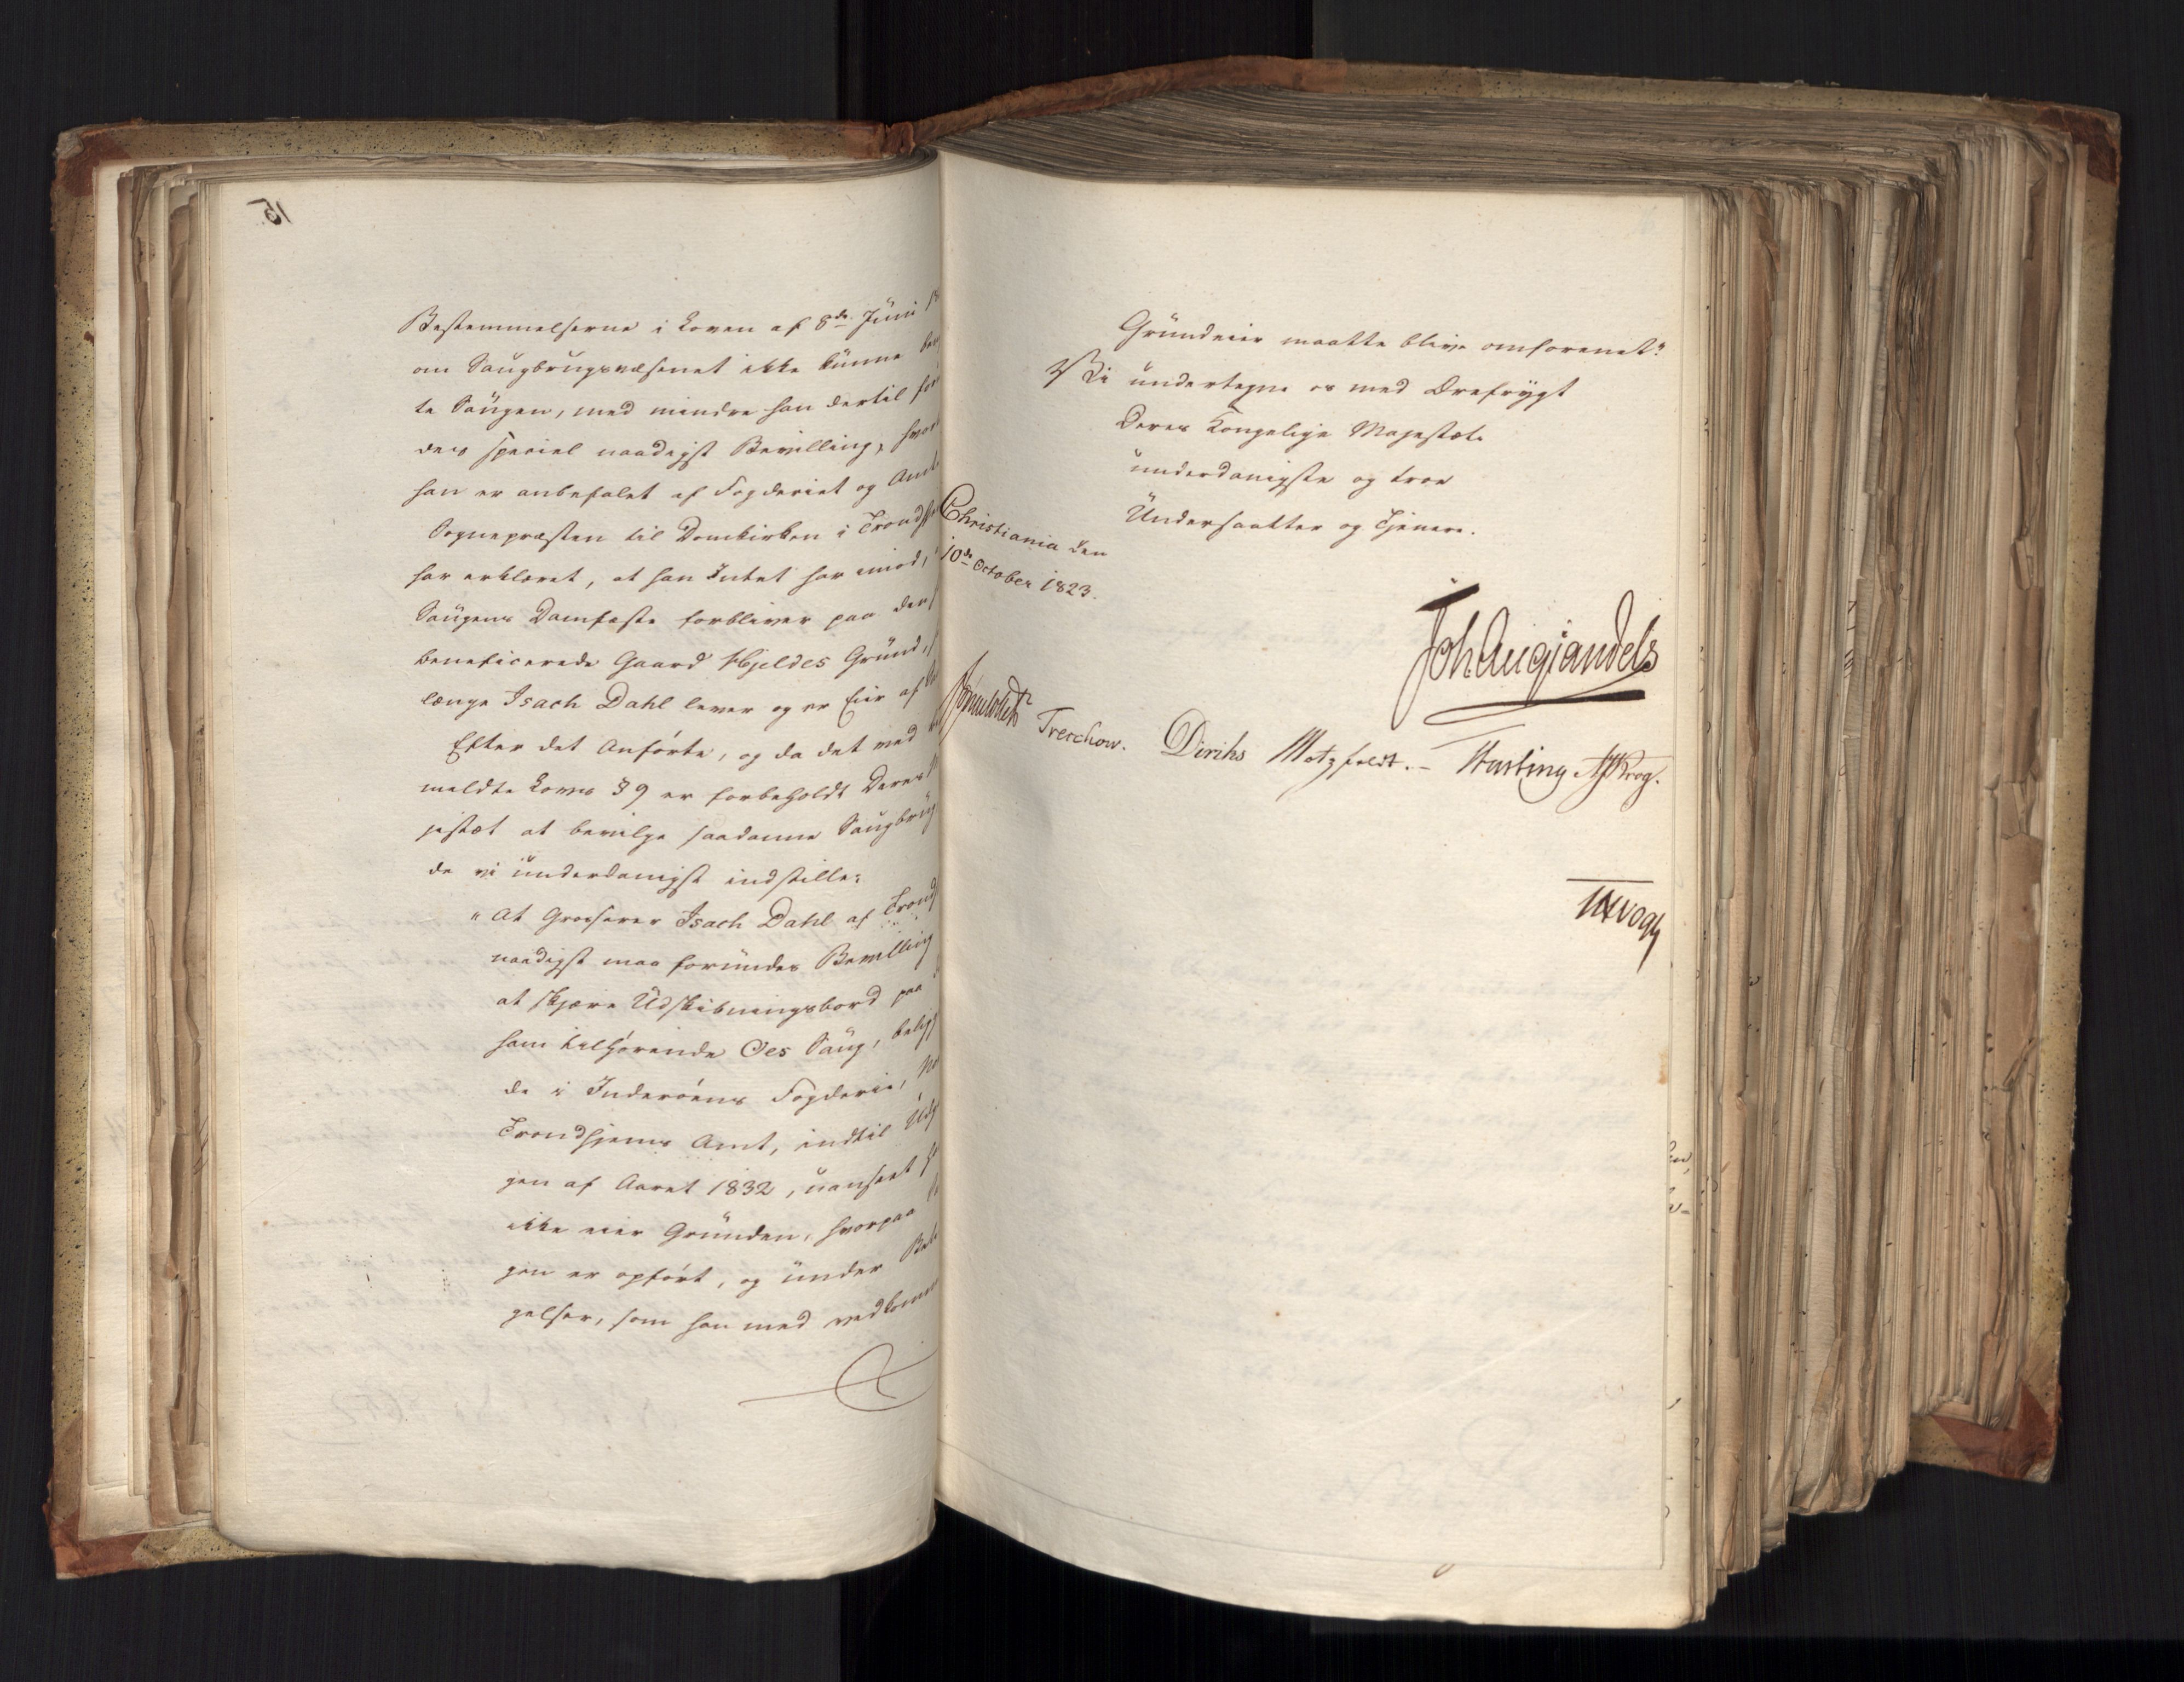 15.
Bestemmelserne i Loven af 8de Juni 18
om Saugbrugsvæsenet ikke kunne ben
te Saugen, med mindre han dertil for
des special naadigst Bevilling, hvor
han er anbefalet af Fogderiet og Amt
Sognepræsten til Domkirken i Trondhje
har erklæret, at han Intet har imod,
Saugens Damfæste forbliver paa den
beneficerede Gaard Hjeldes Grund,
længe Isach Dahl lever og er Eier af
Efter det Anførte, og da det ved
meldte Lovs § 9 er forbeholdt Deres
jestæt at bevilge saadanne Saugbrug
de vi underdanigst indstille:
"At Grosserer Isach Dahl af Trond
naadigst maa forundes Bevilling
at skjære Udskibningsbord paa
ham tilhørende Oes Saug, belig
de i Inderøens Fogderie, No
Trondhjems Amt, indtil Udg
gen af Aaret 1832, uanseet
ikke eier Grunden, hvorpaa
gen er opført, og under Beti
gelser, som han med vedkomm
Grundeier maatte blive omforenet."
Vi undertegne os med Ærefrygt
Deres Kongelige Majestæts
underdanigste og troe
Undersaatter og Tjenere.
Christiania den
10de October 1823.
Joh Aug Sandels
Sommerhielm Treschow. Diriks Motzfeldt. Fasting Krog.
Vogt